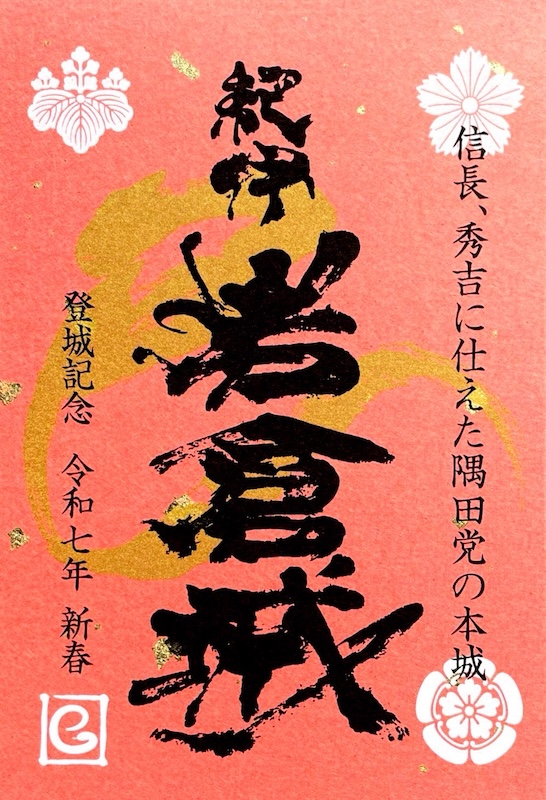 信長、秀吉に仕えた隅田党の本城
紀伊
岩倉城
登城記念　令和七年　新春